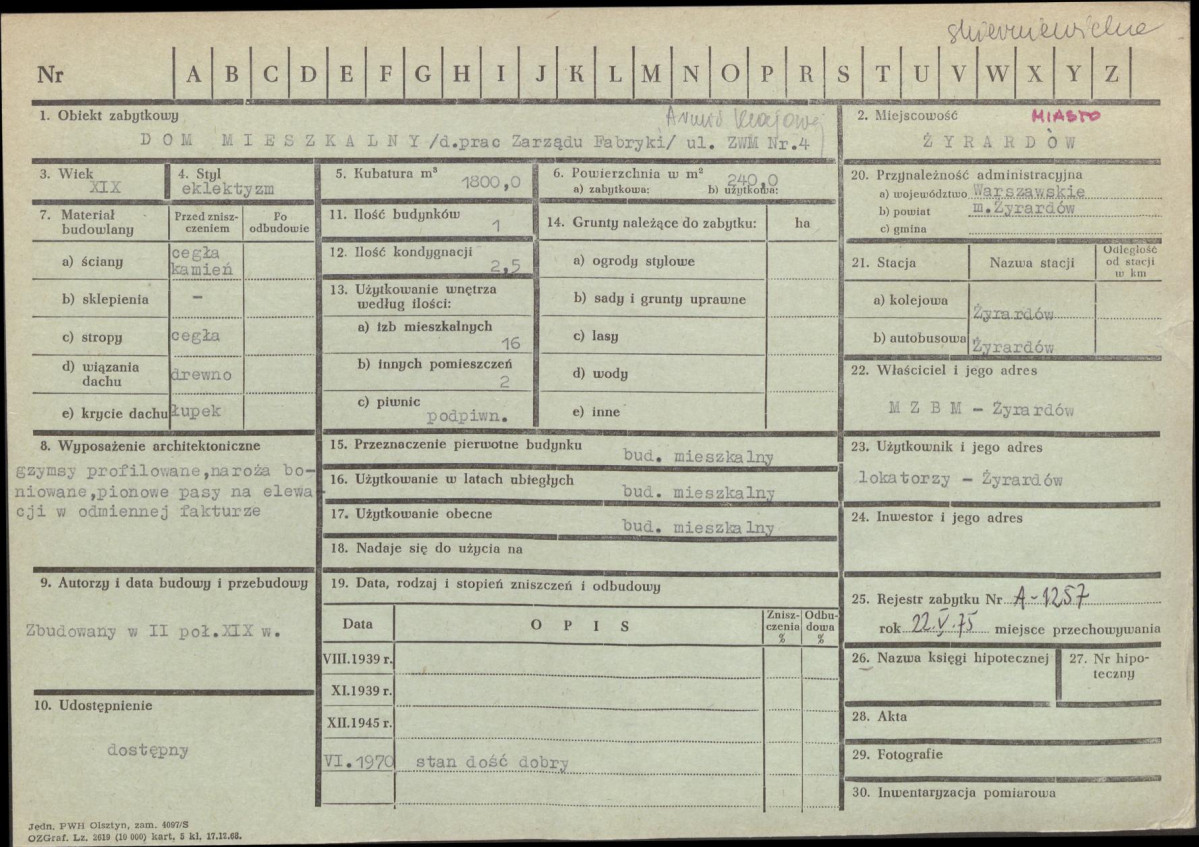 skierniewickie
Nr A B C D E F G H I J K L M N O P R S T U V W X Y Z
1. Obiekt zabytkowy
Armii Krajowej
D O M M I E S Z K A L N Y /d.prac Zarządu Fabryki/ ul. ZWM Nr.4
2. Miejscowość MIASTO
Ż Y R A R D Ó W
3. Wiek
XIX
4. Styl
eklektyzm
5. Kubatura m³
1800,0
6. Powierzchnia w m²
a) zabytkowa: b) użytkowa:
240,0
20. Przynależność administracyjna
a) województwo Warszawskie
b) powiat m.Żyrardów
c) gmina
7. Materiał budowlany
Przed znisz-
czeniem
Po
odbudowie
a) ściany cegła
kamień
b) sklepienia –
c) stropy cegła
d) wiązania
dachu drewno
e) krycie dachu łupek
11. Ilość budynków
1
12. Ilość kondygnacji
2,5
13. Użytkowanie wnętrza
według ilości:
a) izb mieszkalnych
16
b) innych pomieszczeń
2
c) piwnic
podpiwn.
14. Grunty należące do zabytku: ha
a) ogrody stylowe
b) sady i grunty uprawne
c) lasy
d) wody
e) inne
21. Stacja Nazwa stacji
Odległość
od stacji
w km
a) kolejowa Żyrardów
b) autobusowa Żyrardów
22. Właściciel i jego adres
M Z B M – Żyrardów
8. Wyposażenie architektoniczne
gzymsy profilowane,naroża bo-
niowane,pionowe pasy na elewa-
cji w odmiennej fakturze
15. Przeznaczenie pierwotne budynku
bud. mieszkalny
16. Użytkowanie w latach ubiegłych
bud. mieszkalny
17. Użytkowanie obecne
bud. mieszkalny
18. Nadaje się do użycia na
23. Użytkownik i jego adres
lokatorzy – Żyrardów
24. Inwestor i jego adres
9. Autorzy i data budowy i przebudowy
Zbudowany w II poł.XIX w.
19. Data, rodzaj i stopień zniszczeń i odbudowy
Data O P I S
Znisz-
czenia
%
Odbu-
dowa
%
VIII.1939 r.
XI.1939 r.
XII.1945 r.
VI.1970 stan dość dobry
25. Rejestr zabytku Nr A-1257
rok 22.V.75 miejsce przechowywania
26. Nazwa księgi hipotecznej
27. Nr hipo-
teczny
10. Udostępnienie
dostępny
28. Akta
29. Fotografie
30. Inwentaryzacja pomiarowa
Jedn. PWH Olsztyn, zam. 4097/S
OZGraf. Lz. 2619 (10 000) kart. 5 kl. 17.12.68.